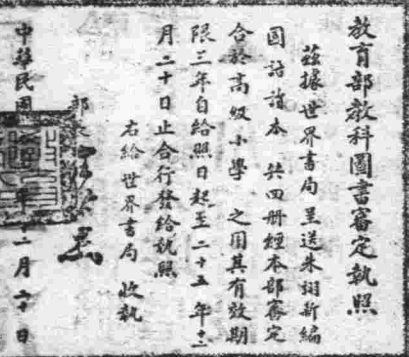 教育部教科圖書審定執照
茲據世界書局呈送朱翊新編
國語讀本 共四册經本部審定
合於高級小學 之用其有效期
限三年自給照日起至二十五年十二
月二十日止合行發給執照
右給世界書局 收執
部長
中華民國 年十二月二十日